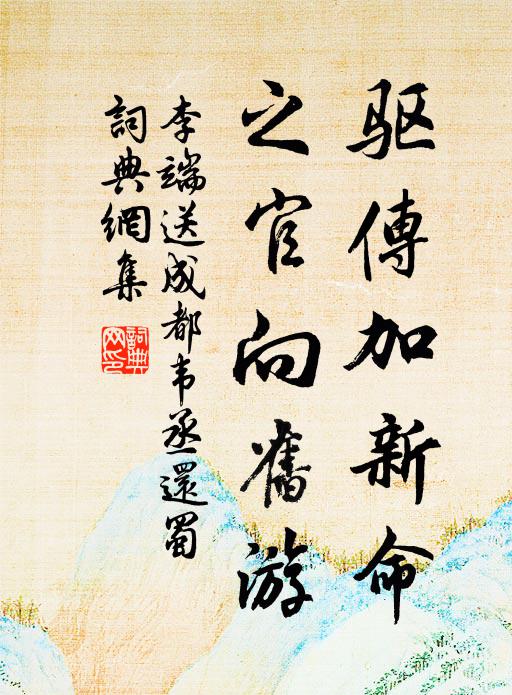 驱傳加新命
之官向舊游
李端送成都韦丞還蜀
詞典網集
詞典网印